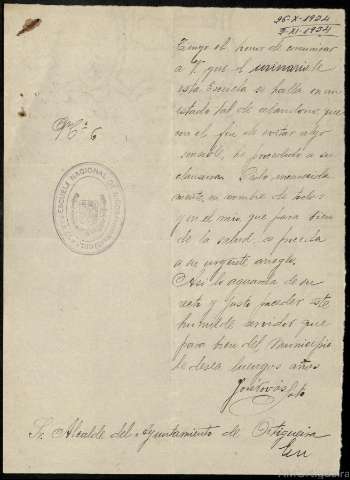 26-X-1924
3-XI-1924
Tengo el honor de comunicar
a V. que el urinario de
esta Escuela se halla en un
estado tal de abandono, que
con el fin de evitar algo
sensible, he procedido a su
clausura. Pido
en nombre de todos
y en el mio, que para bien
de la salud, se proceda
a su urgente arreglo.
Asi lo aguarda de su
recto y justo proceder este
humilde servidor que
para bien del Municipio
le desea luengos años
Soto
Nº 6
ESCUELA NACIONAL DE
Sr. Alcalde del Ayuntamiento de Ortigueira